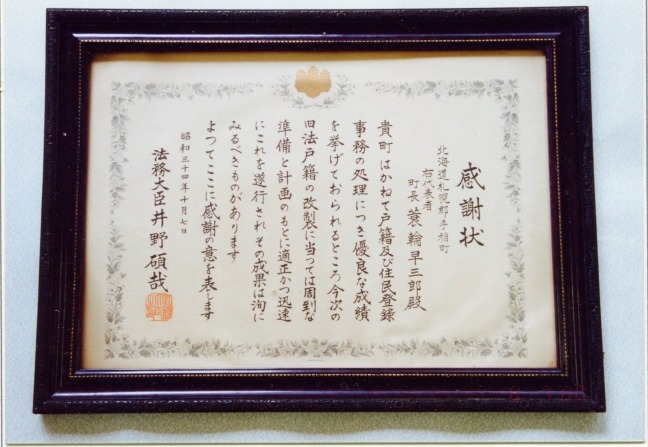 感謝状
北海道札幌郡手稲町
右代表者
町長 蓑輪早三郎殿
貴町はかねて戸籍及び住民登録
事務の処理につき優良な成績
を挙げておられるところ今次の
旧法戸籍の改製に当つては周到な
準備と計画のもとに適正かつ迅速
にこれを遂行されその成果は洵に
みるべきものがあります
よつてここに感謝の意を表します
昭和三十四年十月七日
法務大臣 井野碩哉